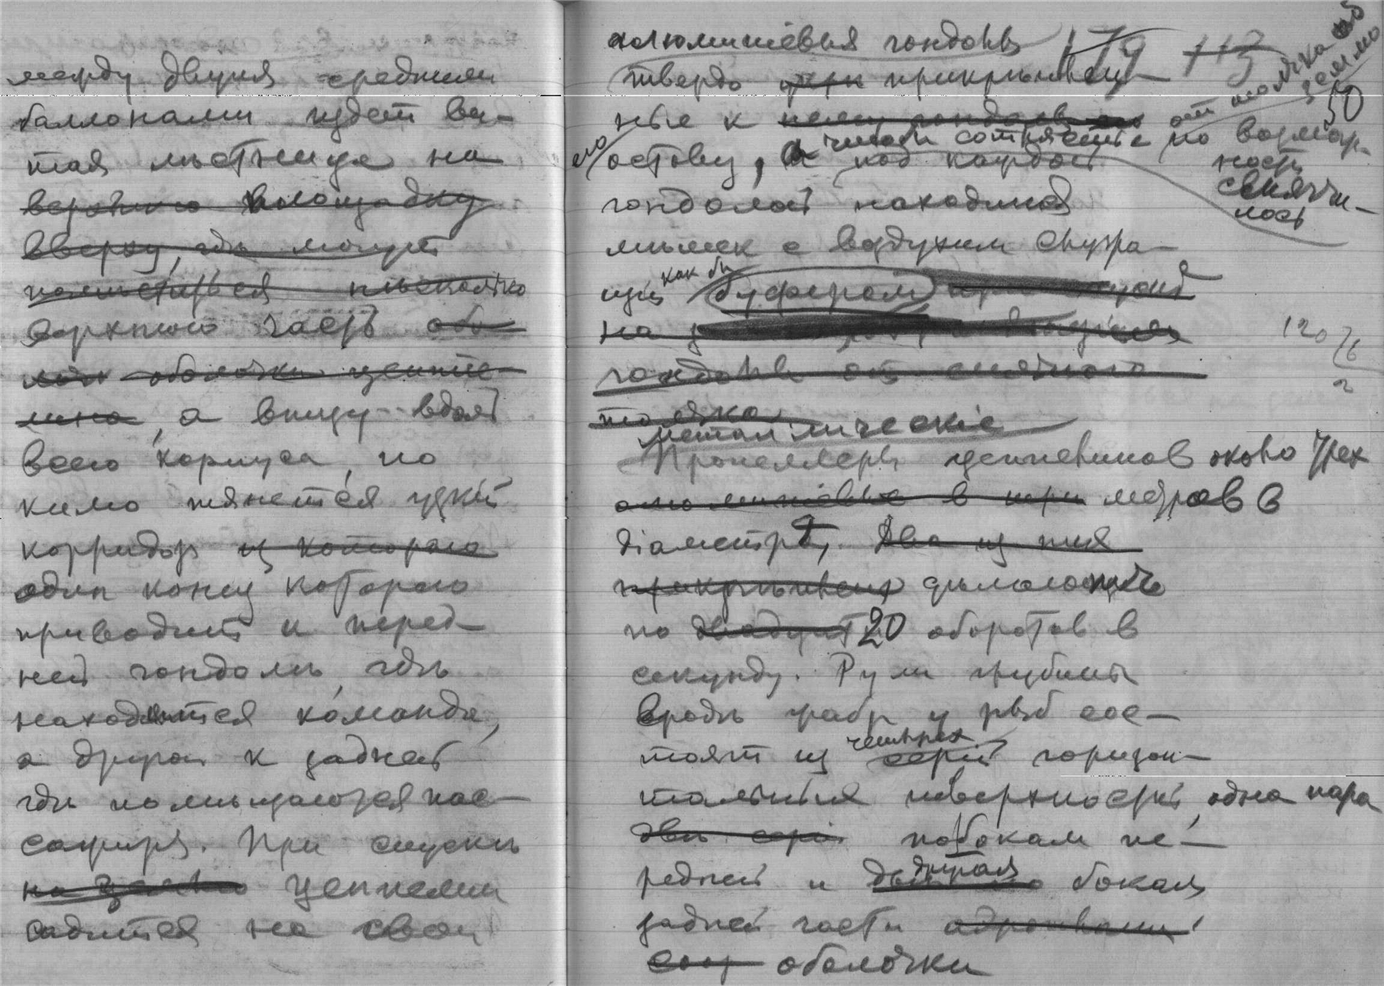 между двумя средними
баллонами идет ви-
тая лестница на
верхнюю площадку
вверху, где могут
поместиться несколько
верхнюю часть обо
лочки цеппе-
лина, а внизу вдоль
всего корпуса, по
килю тянется узкий
корридор из которого
один конец которого
приводит к перед-
ней гондоле, где
находится команда,
а другой к задней
где помещаются пас-
сажиры. При спуске
на землю цеппелин
садится на свои
алюминиевыя гондолы 179 113
твердо при прикрепен- от толчка об землю
ные к нему гондолы 50
остову, а под каждой
чтобы сотрясение по возмож-
ности смягчи-
лось
гондолой находится
мешек с воздухом служа-
щий как бы буфером при спуске
на
гондолы от сильного
толчка
металлическіе
Пропеллеры цеппелинов около трех
алюминіевые в три метров в
діаметре, Два из них
прикреплены делающіе
по двадцати 20 оборотов в
секунду. Рули глубины
вроде жабр у рыб сос-
тоят из четырех серій горизон-
тальных поверхностей, одна пара
две серіи по бокам пе-
редней и другая бокам
задней части
оболочки
120